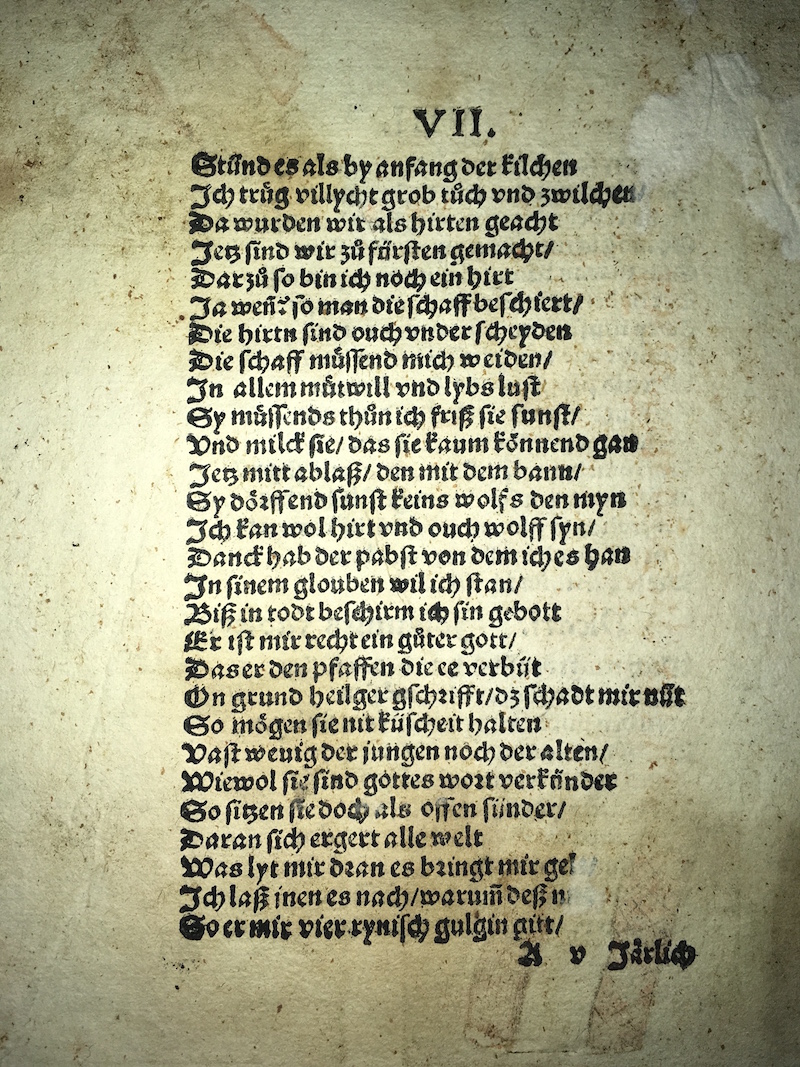 VII.
Stůnd es als by anfang der kilchen
Ich trůg villycht grob tůch vnd zwilchen
Da wurden wir als hirten geacht
Jetz sind wir zů fürsten gemacht/
Dar zů so bin ich noch ein hirt
Ja weñ so man die schaff beschiert/
Die hirtn sind ouch vnder scheyden
Die schaff müssend mich weiden/
In allem můtwill vnd lybs lust
Sy müssends thůn ich friß sie sunst/
Vnd milck sie/ das sie kaum könnend gan
Jetz mitt ablaß/ den mit dem bann/
Sy dörffend sunst keins wolfs den myn
Ich kan wol hirt vnd ouch wolff syn/
Danck hab der pabst von dem ich es han
In sinem glouben wil ich stan/
Biß in todt beschirm ich sin gebott
Er ist mir recht ein gůter gott/
Das er den pfaffen die ee verbüt
On grund heilger gschrifft/ dz schadt mir nüt
So mögen sie nit küscheit halten
Vast wenig der jungen noch der alten/
Wiewol sie sind gottes wort verkünder
So sitzen sie doch als offen sünder/
Daran sich ergert alle welt
Was lyt mir dran es bringt mir
Ich laß inen es nach/ warum̃ deß
So er mir vier rynisch gulgin gitt/
A v Järlich